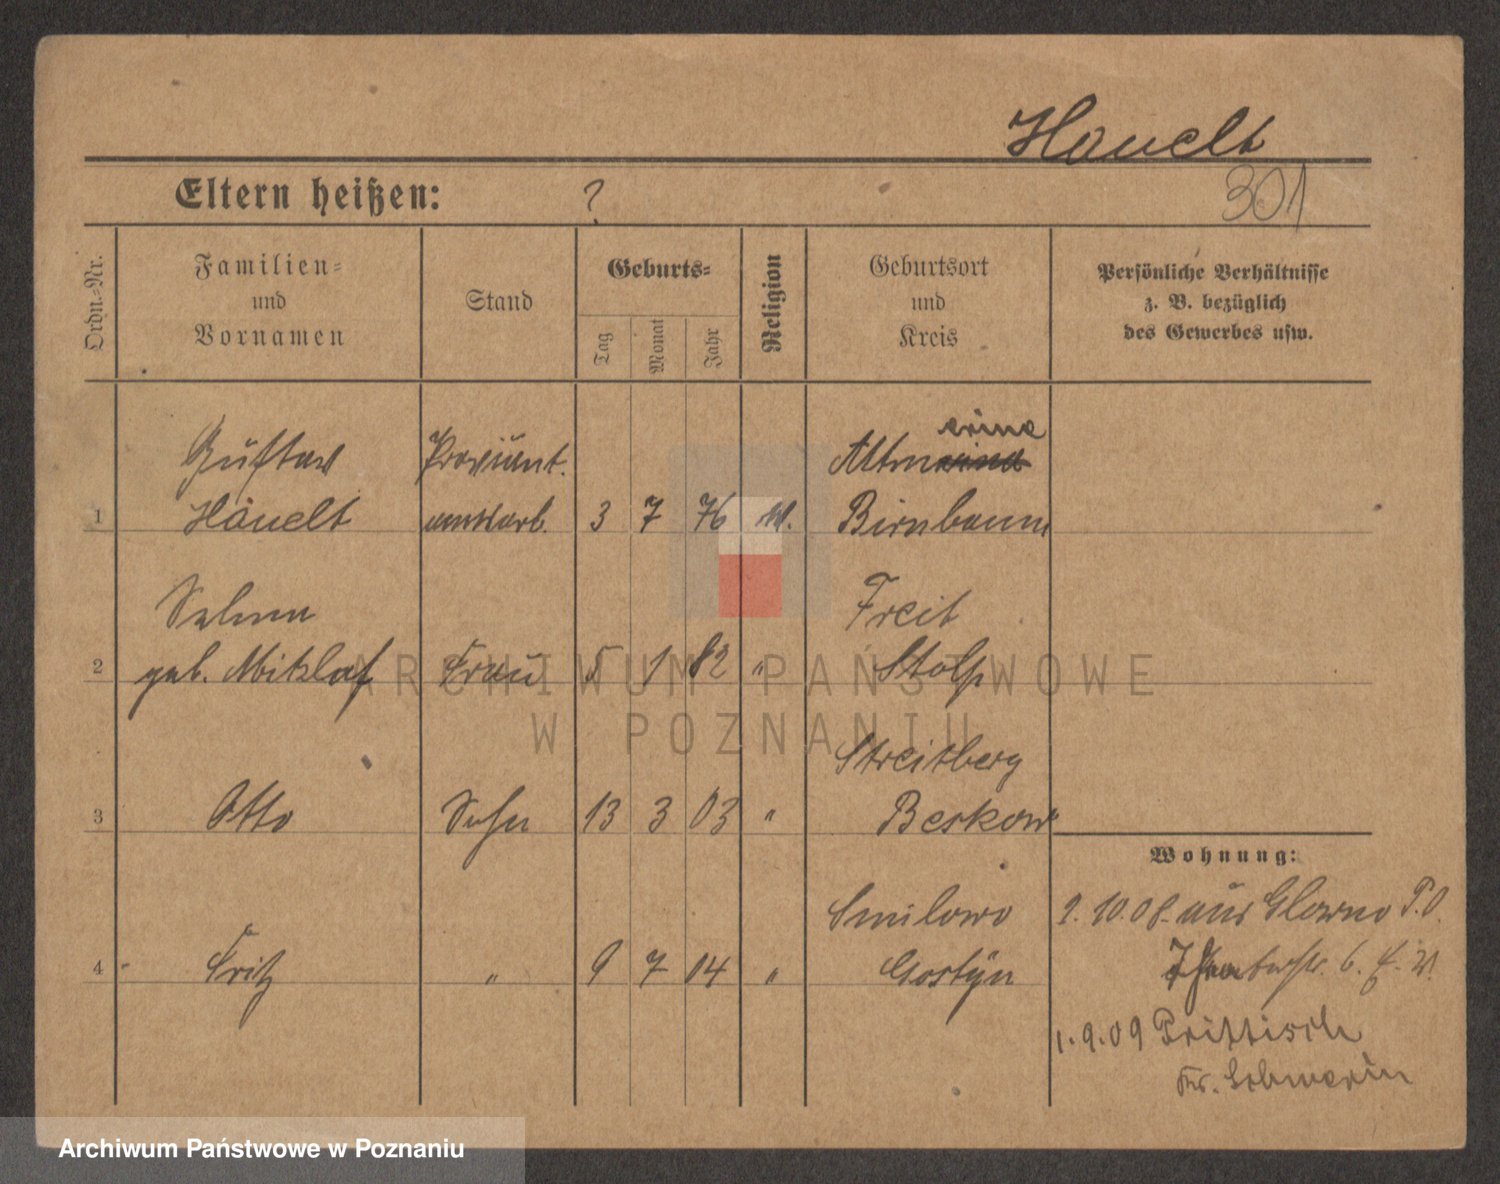 Hauelt
Eltern heißen: ?
301
Ordn.-Nr.
Familien-
und
Vornamen
Stand
Geburts-
Tag
Monat
Jahr
Religion
Geburtsort
und
Kreis
Persönliche Verhältnisse
z. B. bezüglich
des Gewerbes usw.
Gustav Proviant. Altm eine
1 Hauelt amtsarb. 3 7 76 Birnbaum
Selma Freit
2 geb. Mitzlaf Frau 5 1 82 " Stolp
Streitberg
3 Otto Sohn 13 3 03 " Beskow
Wohnung:
Smilowo 1.10.08. aus Glowno P.O.
4 Fritz " 9 7 04 " Gostÿn 6.
1.9.09 Prittisch
Kr. Schwerin
ARCHIWUM PAŃSTWOWE
W POZNANIU
Archiwum Państwowe w Poznaniu